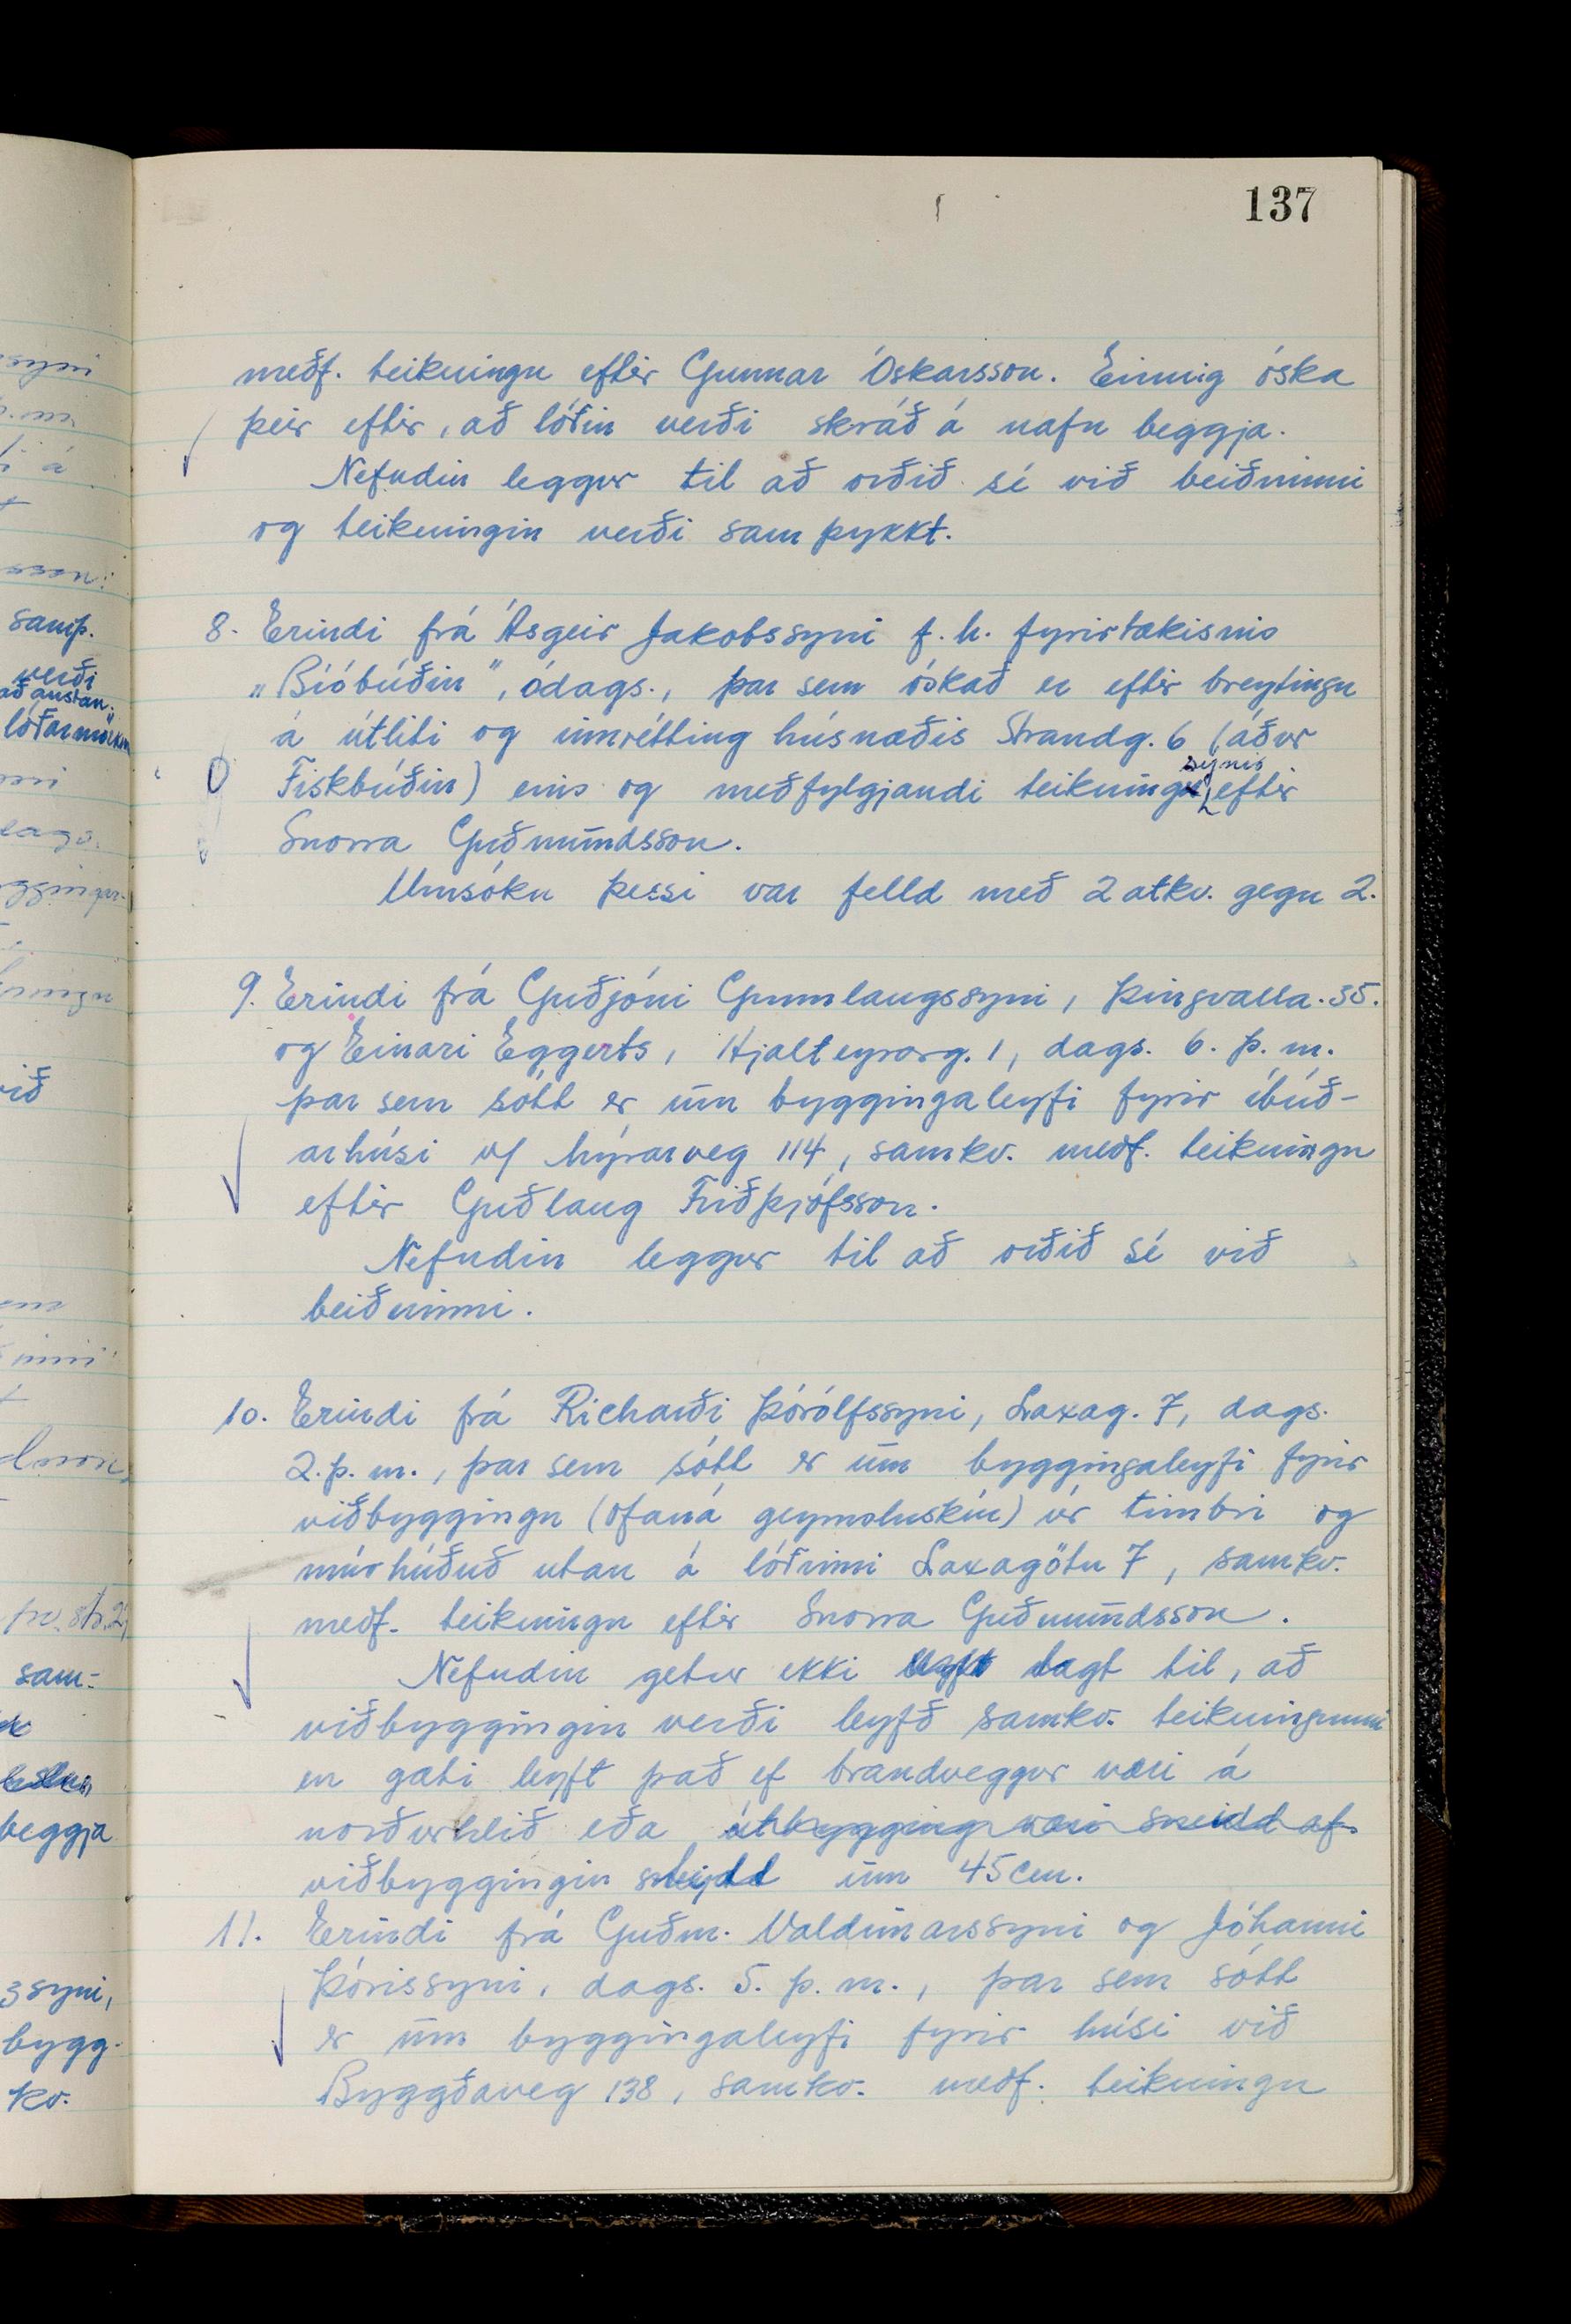 137
meðf. teikningu eftir Gunnar Óskarsson. Einnig óska
þeir eftir, að lóðin verði skráð á nafn beggja.
Nefndin leggur til að orðið sé við beiðninni
og teikningin verði samþykkt.
8. Erindi frá Ásgeir Jakobssyni f.h. fyrirtækisins
„Bíóbúðin", ódags., þar sem óskað er eftir breytingu
á útliti og innrétting húsnæðis Strandg. 6 (áður
Fiskbúðin) eins og meðfylgjandi teikning sýnir eftir
Snorra Guðmundsson.
Umsókn þessi var felld með 2 atkv. gegn 2.
9. Erindi frá Guðjóni Gunnlaugssyni, Þingvalla. 35.
og Einari Eggerts, Hjalteyrarg. 1, dags. 6. þ.m.
þar sem sótt er um byggingaleyfi fyrir íbúð-
arhúsi v/ Mýrarveg 114, samkv. meðf. teikningu
eftir Guðlaug Friðþjófsson.
Nefndin leggur til að orðið sé við
beiðninni.
10. Erindi frá Richarði Þórólfssyni, Laxag. 7, dags.
2. þ.m., þar sem sótt er um byggingaleyfi fyrir
viðbyggingu (ofaná geymsluskúr) úr timbri og
múrhúðuð utan á lóðinni Laxagötu 7, samkv.
meðf. teikningu eftir Snorra Guðmundsson.
Nefndin getur ekki lagt til, að
viðbyggingin verði leyfð samkv. teikningunni
en gæti leyft það ef brandveggur væri á
norðurhlið eða útbygging væri sneidd af
viðbyggingin um 45 cm.
11. Erindi frá Guðm. Valdimarssyni og Jóhanni
Þórissyni, dags. 5. þ.m., þar sem sótt
er um byggingaleyfi fyrir húsi við
Byggðaveg 138, samkv. meðf. teikningu
samþ.
verði
að austan.
við
sam-
beggja
syni,
bygg-
kv.